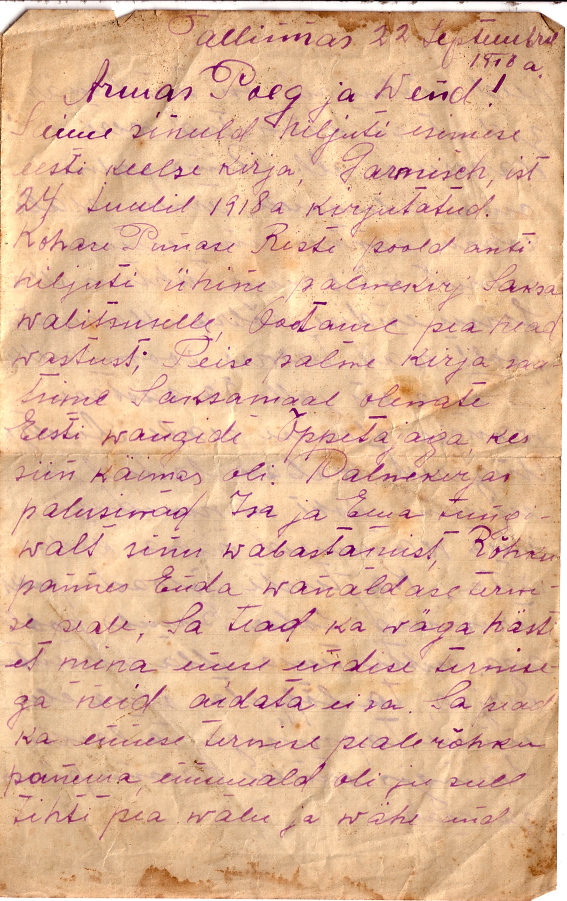 Tallinnas 22 Septembril
1918 a.
Armas Poeg ja Wend!
Seime sinuld hiljuti esimese
eesti keelse kirja, Garmisch, ist
24 Juulil 1918 a kirjutatud.
Kohase Punase Risti poold anti
hiljuti ühine palwekirj Saksa
walitsuselle, Ootame pea head
wastust; Teise palwe kirja saa-
tsime Saksamaal olewate
Eesti wangide Õppetajaga, kes
siin käimas oli. Palwekirjas
palusiwad Isa ja Ema tungi-
walt sinu wabastamist, Rõhku
pannes Enda wanaldase terwi-
se peale, Sa tead ka wäga hästi
et mina enese endise terwise
ga neid aidata ei sa. Sa pead
ka ennese terwise peale rõhku
panema, ennemald oli ju sull
tihti pea walu ja wähe und